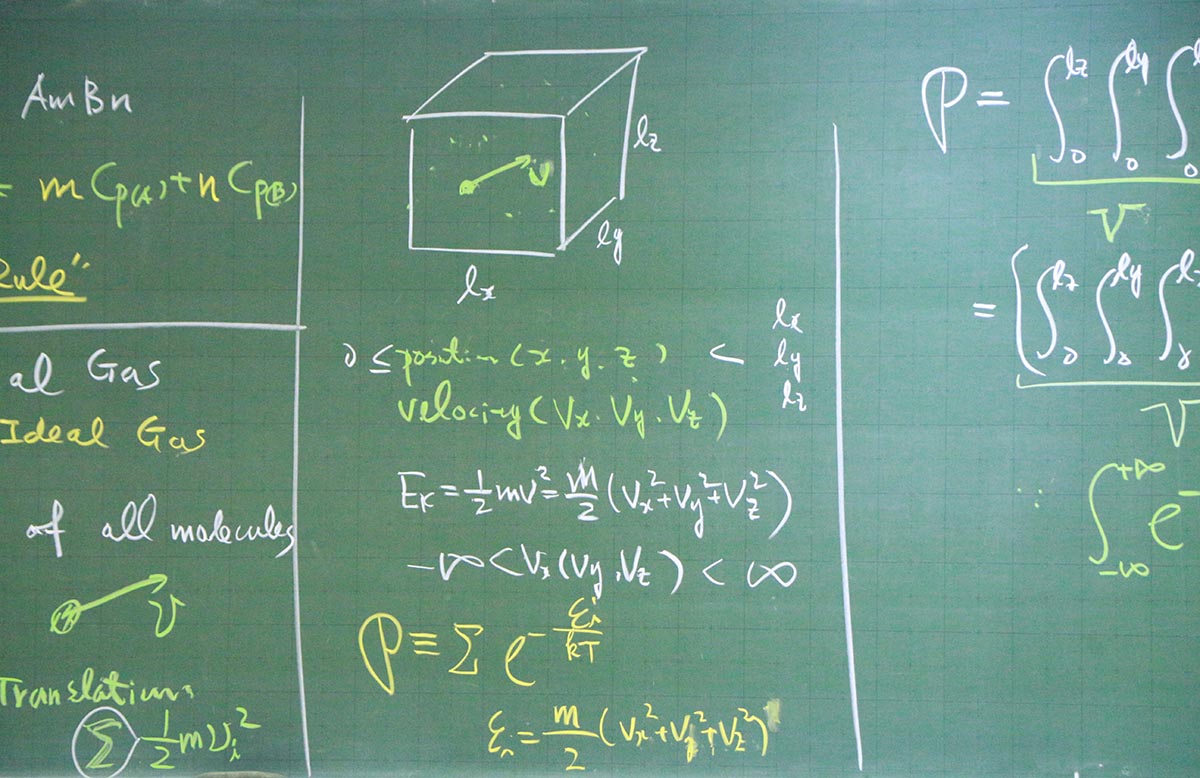 AmBn
= m Cp(A) + n Cp(B)
Rule"
al Gas
Ideal Gas
of all molecules
v
Translation
Σ ½mvᵢ²
v
lz
ly
lx
0 ≤ position (x, y, z) < lx ly lz
velocity (Vx, Vy, Vz)
Eₖ = ½mv² = m/2 (Vx² + Vy² + Vz²)
-∞ < Vx (Vy, Vz) < ∞
P ≡ Σ e^(-εᵢ/kT)
εᵢ = m/2 (Vx² + Vy² + Vz²)
P = ∫₀^lz ∫₀^ly ∫₀
V
= (∫₀^lz ∫₀^ly ∫₀^lx
V
∵ ∫_-∞^+∞ e^-